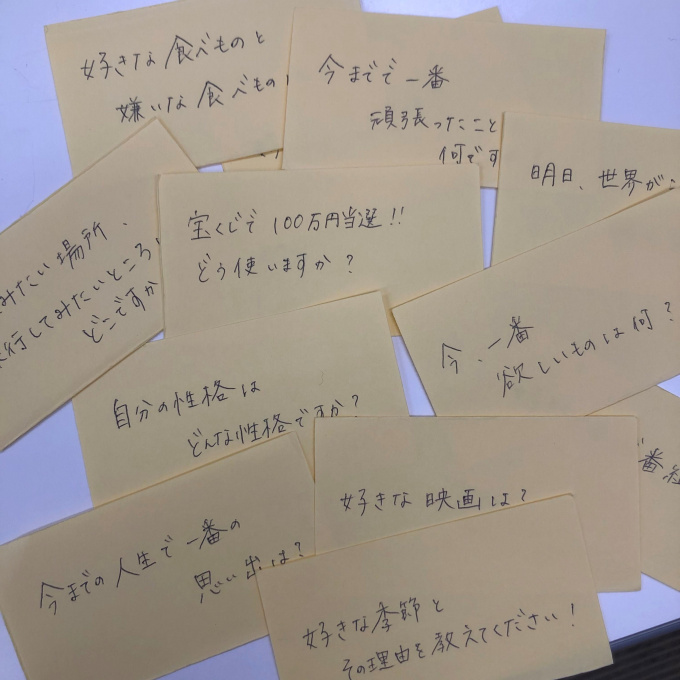 好きな食べものと
嫌いな食べもの
今までで一番
頑張ったこと
何です
明日、世界が
みたい場所、
行してみたいところ
どこですか
宝くじで 100万円当選!!
どう使いますか?
今、一番
欲しいものは何?
自分の性格は
どんな性格ですか?
番組
好きな映画は?
今までの人生で一番の
思い出は?
好きな季節と
その理由を教えてください!